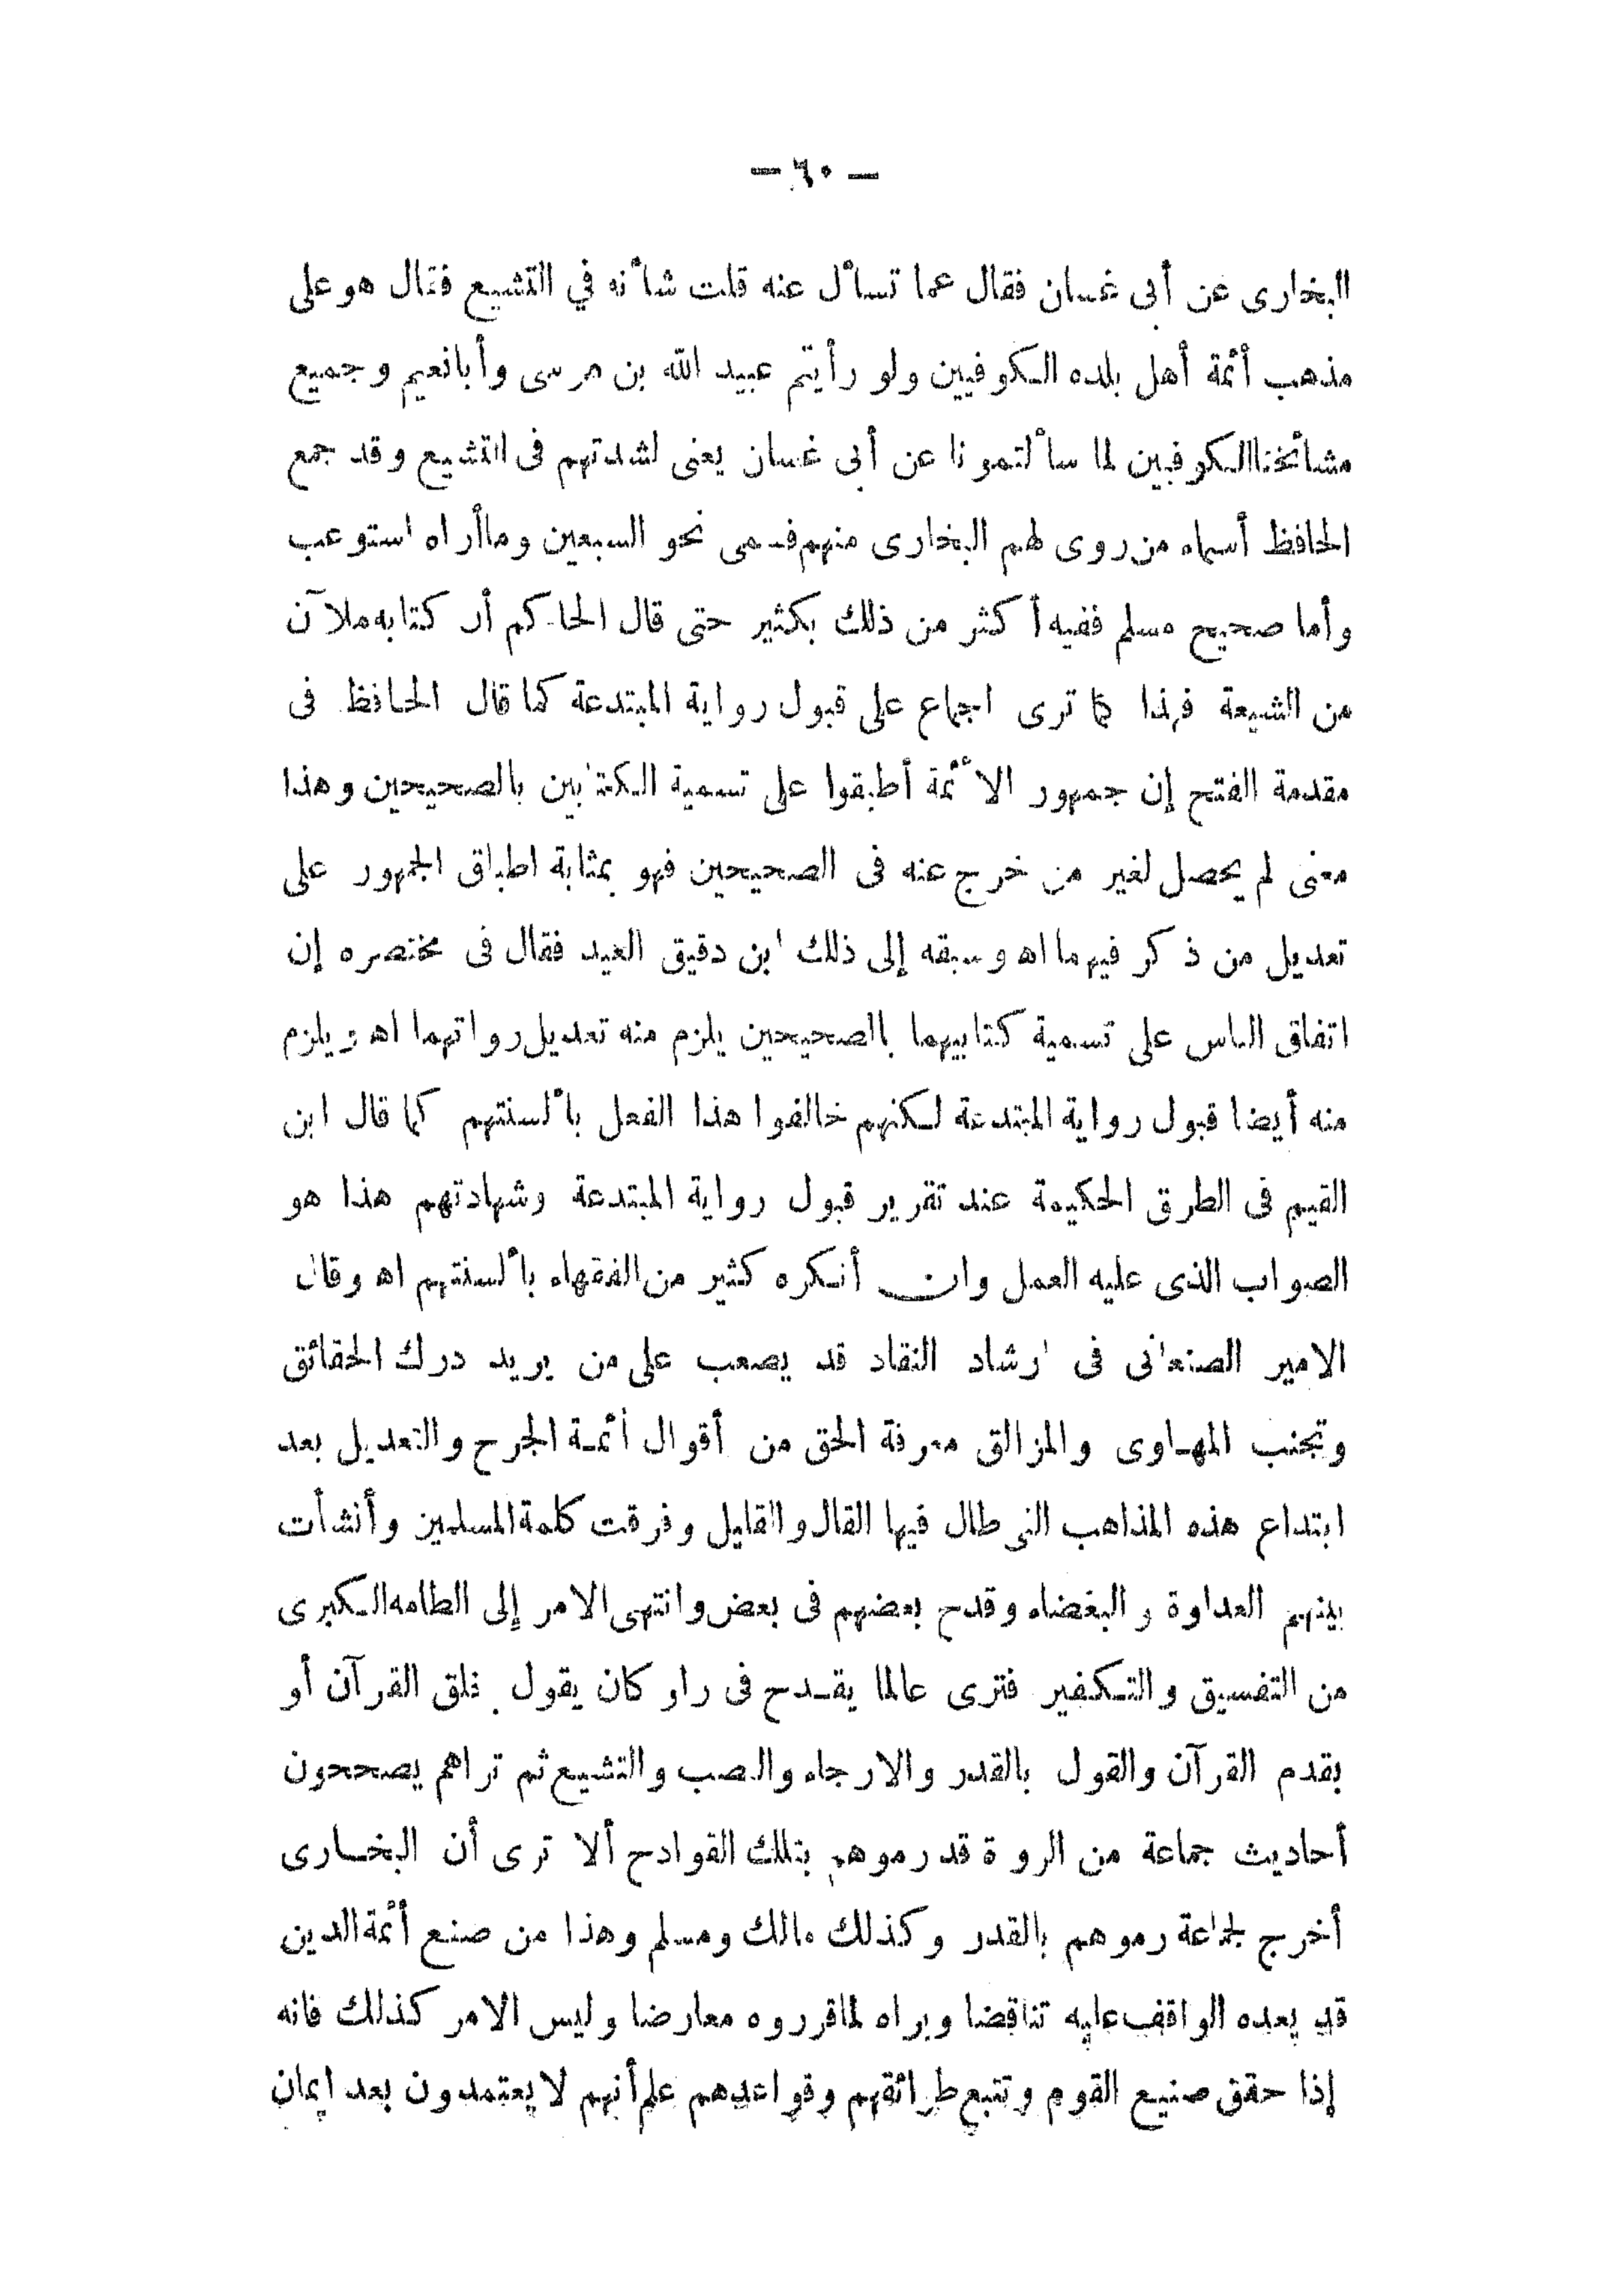 — ٦٠ —
البخارى عن أبى غسان فقال عما تسأل عنه قلت شأنه في التشيع فقال هو على
مذهب أئمة أهل بلده الكوفيين ولو رأيتم عبيد الله بن موسى وأبانعيم وجميع
مشائخنا الكوفيين لما سألتمونا عن أبى غسان يعنى لشدتهم فى التشيع وقد جمع
الحافظ أسماء من روى لهم البخارى منهم فسمى نحو السبعين وما أراه استوعب
وأما صحيح مسلم ففيه أكثر من ذلك بكثير حتى قال الحاكم أن كتابه ملآن
من الشيعة فهذا كما ترى اجماع على قبول رواية المبتدعة كما قال الحافظ فى
مقدمة الفتح إن جمهور الأئمة أطبقوا على تسمية الكتابين بالصحيحين وهذا
معنى لم يحصل لغير من خرج عنه فى الصحيحين فهو بمثابة اطباق الجمهور على
تعديل من ذكر فيهما اه وسبقه إلى ذلك ابن دقيق العيد فقال فى مختصره إن
اتفاق الناس على تسمية كتابيهما بالصحيحين يلزم منه تعديل رواتهما اه ويلزم
منه أيضا قبول رواية المبتدعة لكنهم خالفوا هذا الفعل بألسنتهم كما قال ابن
القيم فى الطرق الحكيمة عند تقرير قبول رواية المبتدعة وشهادتهم هذا هو
الصواب الذى عليه العمل وان أنكره كثير من الفقهاء بألسنتهم اه وقال
الامير الصنعانى فى ارشاد النقاد قد يصعب على من يريد درك الحقائق
وتجنب المهاوى والمزالق معرفة الحق من أقوال أئمة الجرح والتعديل بعد
ابتداع هذه المذاهب التى طال فيها القال والقليل وفرقت كلمة المسلمين وأنشأت
بينهم العداوة والبغضاء وقدح بعضهم فى بعض وانتهى الامر إلى الطامه الكبرى
من التفسيق والتكفير فترى عالما يقدح فى راو كان يقول بخلق القرآن أو
بقدم القرآن والقول بالقدر والارجاء والنصب والتشيع ثم تراهم يصححون
أحاديث جماعة من الرواة قد رموهم بتلك القوادح ألا ترى أن البخارى
أخرج لجماعة رموهم بالقدر وكذلك مالك ومسلم وهذا من صنع أئمة الدين
قد يعده الواقف عليه تناقضا ويراه لما قرروه معارضا وليس الامر كذلك فانه
إذا حقق صنيع القوم وتتبع طرائقهم وقواعدهم علم أنهم لا يعتمدون بعد ايمان